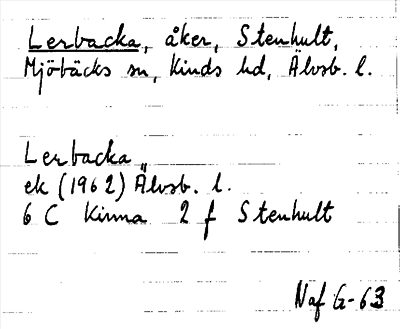 Lerbacka, åker, Stenhult,
Mjöbäcks sn, Kinds hd, Älvsb. l.
Lerbacka
ek (1962) Älvsb. l.
6 C Kinna 2 f Stenhult
Naf G-63